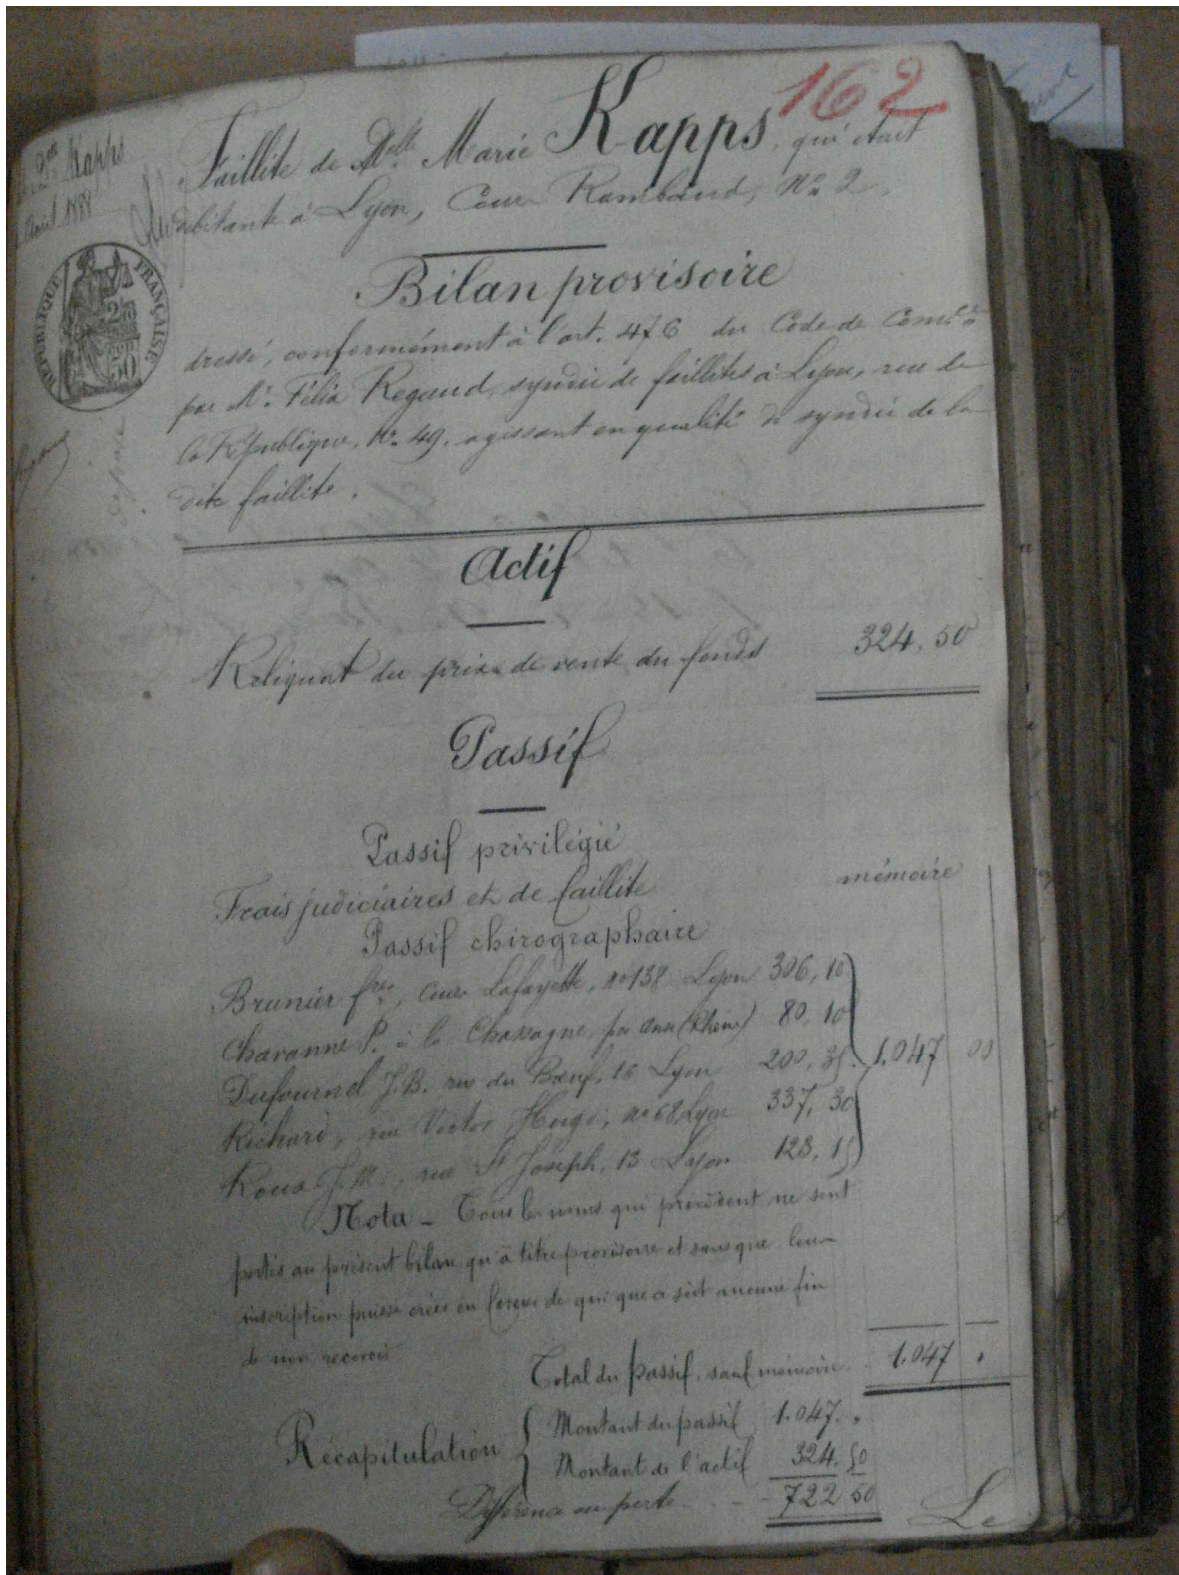 162
Kapps
Avril 1888
Faillite de Dlle Marie Kapps, qui était
débitante à Lyon, Cours Rambaud, No 2.
Bilan provisoire
RÉPUBLIQUE FRANÇAISE
dressé, conformément à l'art. 476 du Code de Comce
par Mr. Félix Regaud, syndic de faillites à Lyon, rue de
la République, No. 49, agissant en qualité de syndic de la
dite faillite.
Actif
Reliquat du prix de vente du fonds 324,50
Passif
Passif privilégié
Frais judiciaires et de faillite mémoire
Passif chirographaire
Brunier fres, Cours Lafayette, no 138 Lyon 306,10
Chavanne P. à la Chassagne, par Anse (Rhône) 80,10
Dufournel J.B. rue du Bœuf, 16 Lyon 200,35 1.047 00
Richard, rue Victor Hugo, no 68 Lyon 337,30
Roux J.M., rue St Joseph, 13 Lyon 123,15
Nota - Tous les noms qui précèdent ne sont
portés au présent bilan qu'à titre provisoire et sans que leur
inscription puisse créer en faveur de qui que ce soit aucune fin
de non recevoir
Total du passif, sauf mémoire 1.047 "
Récapitulation { Montant du passif 1.047. "
Montant de l'actif 324.50
Différence en perte - - - 722 50
Le